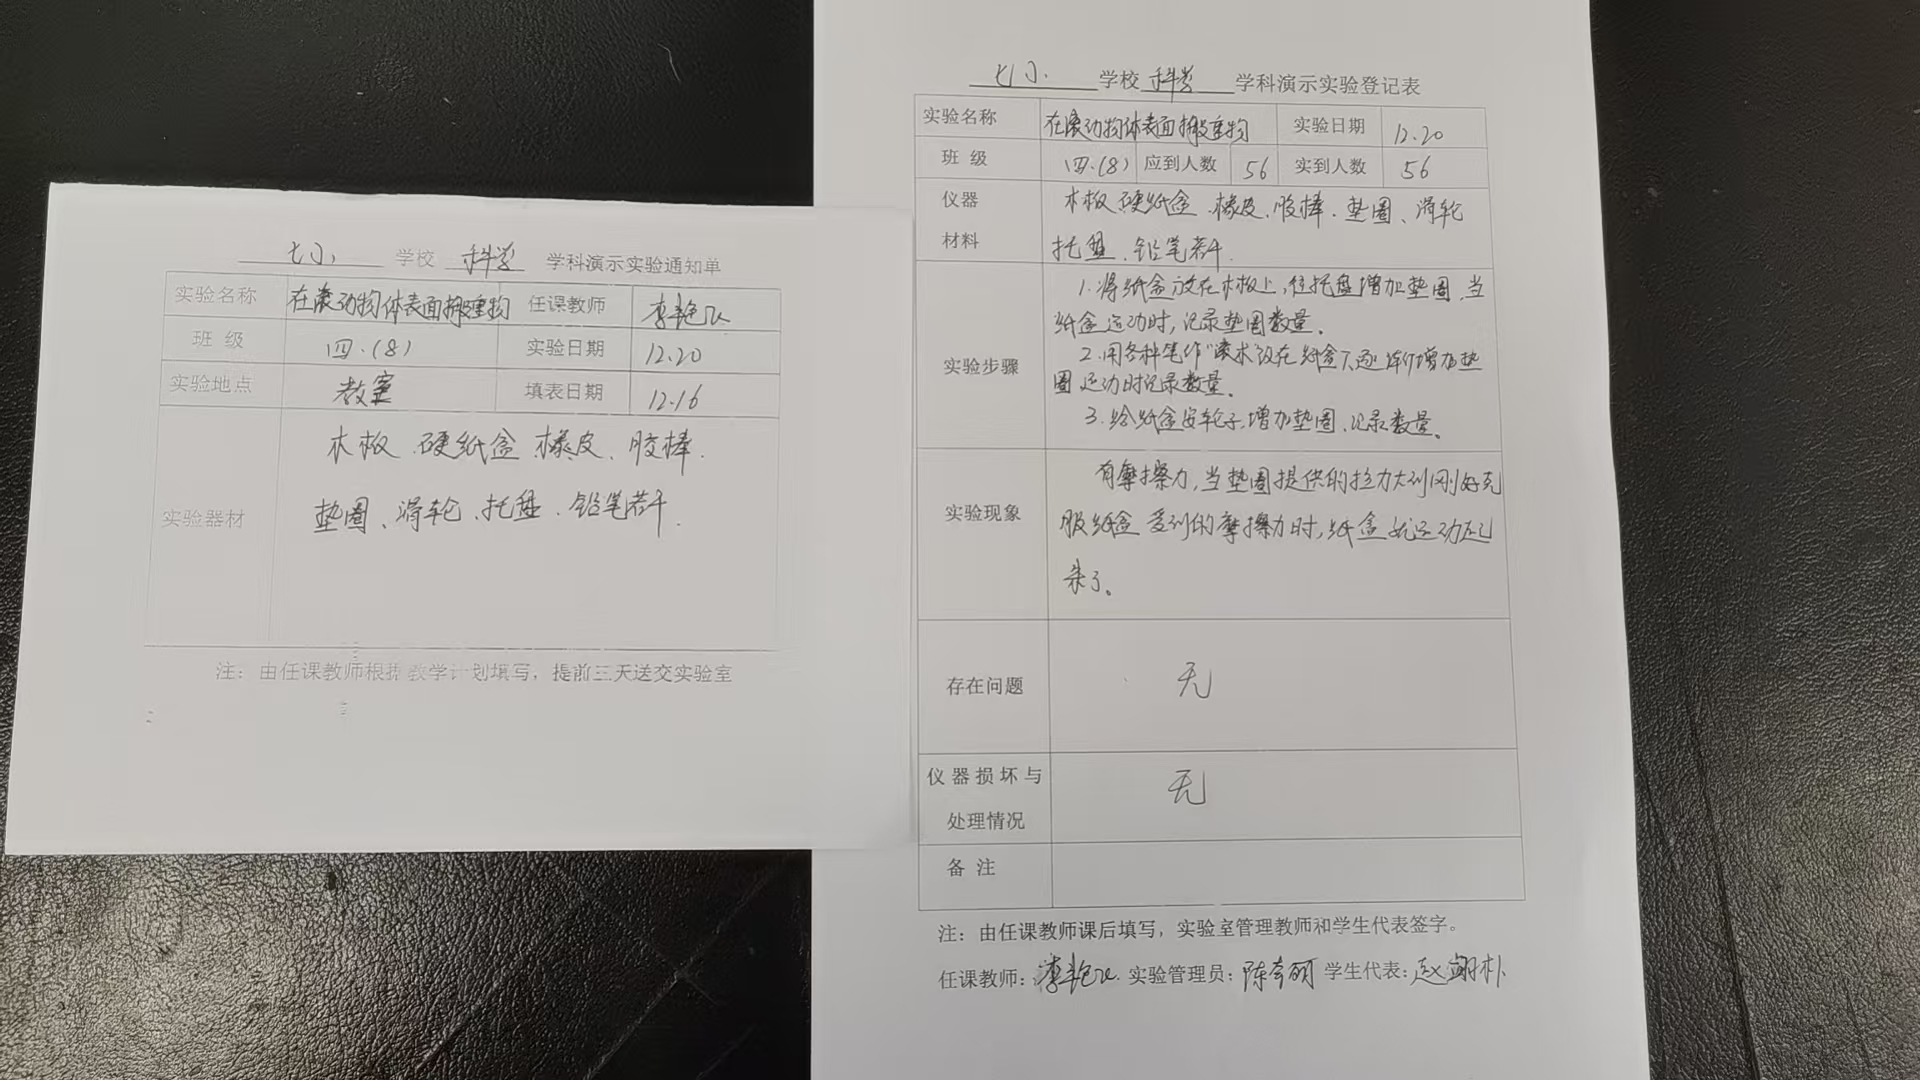 七小 学校 科学 学科演示实验通知单
实验名称 在滚动物体表面搬重物 任课教师
班 级 四.(8) 实验日期 12.20
实验地点 教室 填表日期 12.16
实验器材 木板.硬纸盒.橡皮、胶棒.
垫圈、滑轮、托盘.铅笔若干.
注：由任课教师根据教学计划填写，提前三天送交实验室
七小. 学校 科学 学科演示实验登记表
实验名称 在滚动物体表面搬重物 实验日期 12.20
班 级 四.(8) 应到人数 56 实到人数 56
仪器 木板.硬纸盒.橡皮、胶棒.垫圈、滑轮
材料 托盘.铅笔若干.
实验步骤
1.将纸盒放在木板上，往托盘增加垫圈.当
纸盒运动时，记录垫圈数量。
2.用各种笔作“滚木”放在纸盒下逐渐增加垫
圈运动时记录数量。
3.给纸盒安轮子.增加垫圈.记录数量。
实验现象
有摩擦力，当垫圈提供的拉力大到刚好克
服纸盒受到的摩擦力时，纸盒就运动起
来了。
存在问题 无
仪器损坏与 无
处理情况
备 注
注：由任课教师课后填写，实验室管理教师和学生代表签字。
任课教师： 实验管理员： 学生代表：